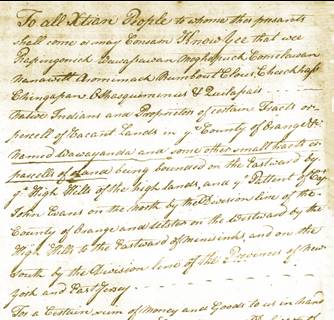 To all Xtian People to whom these presents
shall come or may Concern Know Yee that wee
Rapingonick Wawapawan Moghopuck Comelawaw
Nanawitt Arominiack Rumbout Claus Chouckhass
Chingapaw Oshasquemenus & Quilapaw
Native Indians and Proprietors of certain Tracts or
parcell of Vacant Lands in yᵉ County of Orange &c
Named Wawayanda and some other small tracts or
parcells of Land being bounded on the Eastward by
yᵉ High Hills of the high lands, and yᵉ Pattent of Capᵗ
John Evans on the North by the Division line of the
County of Orange and Ulster on the Westward by the
High Hills to the Eastward of Menisinks and on the
South by the Division line of the Provinces of New
York and East Jersey
For a Certain sum of Money and Goods to us in hand